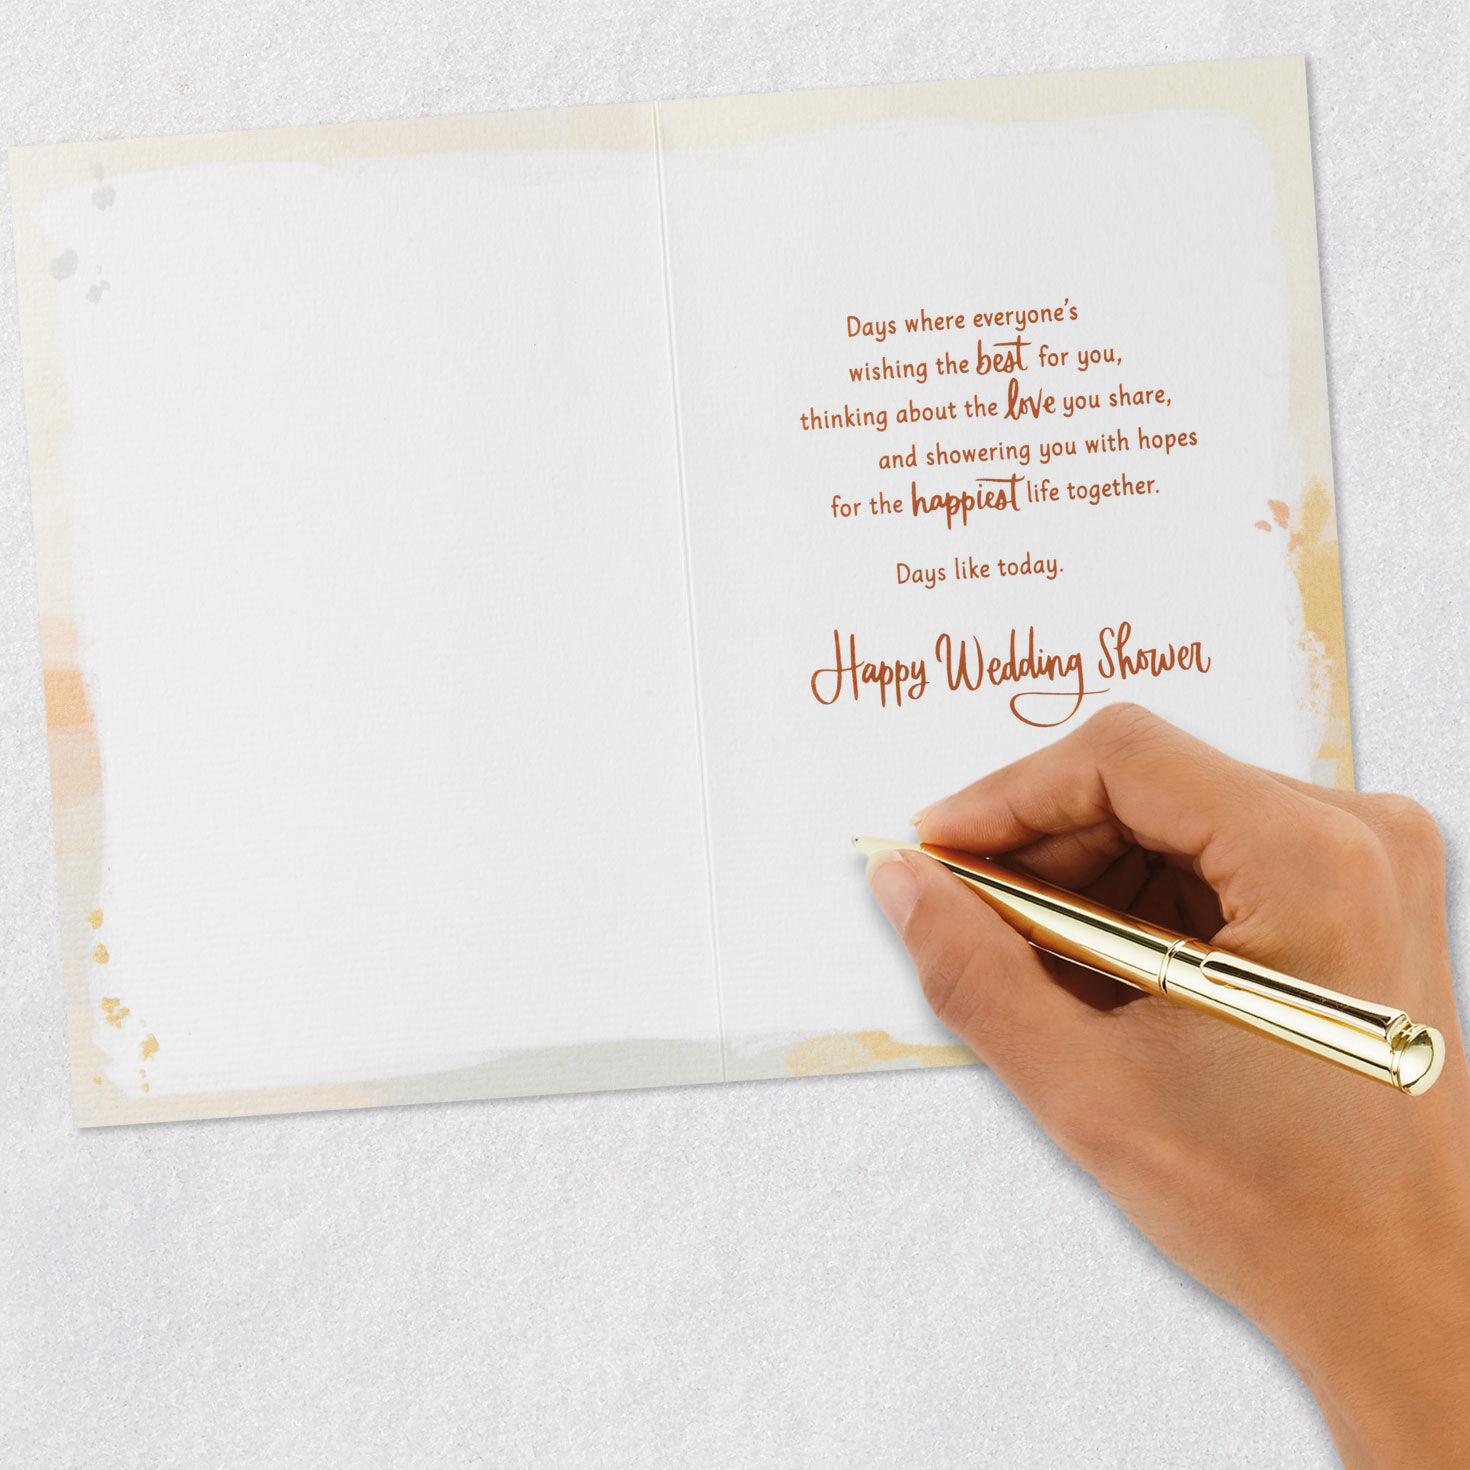 Days where everyone's
wishing the best for you,
thinking about the love you share,
and showering you with hopes
for the happiest life together.
Days like today.
Happy Wedding Shower